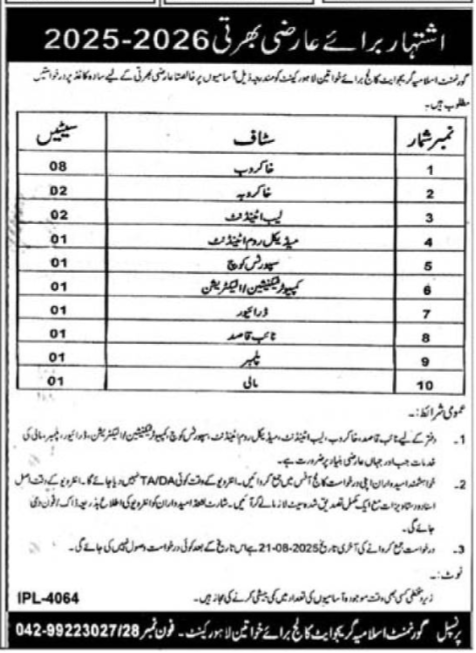 اشتہار برائے عارضی بھرتی 2026-2025
گورنمنٹ اسلامیہ گریجوایٹ کالج برائے خواتین لاہور کینٹ کو مندرجہ ذیل آسامیوں پر خالصتاً عارضی بھرتی کے لیے سادہ کاغذ پر درخواستیں
مطلوب ہیں۔
نمبر شمار سٹاف سیٹیں
1 خاکروب 08
2 خاکروبہ 02
3 لیب اٹینڈنٹ 02
4 میڈیکل روم اٹینڈنٹ 01
5 سپورٹس کوچ 01
6 کمپیوٹر ٹیکنیشین/الیکٹریشن 01
7 ڈرائیور 01
8 نائب قاصد 01
9 پلمبر 01
10 مالی 01
عمومی شرائط:۔
1۔ دفتر کے لیے نائب قاصد، خاکروب، لیب اٹینڈنٹ، میڈیکل روم اٹینڈنٹ، سپورٹس کوچ، کمپیوٹر ٹیکنیشین/الیکٹریشن، ڈرائیور، پلمبر، مالی کی
خدمات جب اور جہاں عارضی بنیاد پر ضرورت ہے۔
2۔ خواہشمند امیدواران اپنی درخواست کالج آفس میں جمع کروائیں۔ انٹرویو کے وقت کوئی TA/DA نہیں دیا جائے گا۔ انٹرویو کے وقت اصل
اسناد و دستاویزات مع ایک مکمل تصدیق شدہ سیٹ لازماً لے کر آئیں۔ شارٹ لسٹڈ امیدواران کو انٹرویو کی اطلاع بذریعہ ڈاک/فون دی
جائے گی۔
3۔ درخواست جمع کروانے کی آخری تاریخ 21-08-2025 ہے اس تاریخ کے بعد کوئی درخواست وصول نہیں کی جائے گی۔
نوٹ:۔
زیر دستخطی کسی بھی وقت موجودہ آسامیوں کی تعداد میں کمی بیشی کرنے کی مجاز ہیں۔
IPL-4064
پرنسپل گورنمنٹ اسلامیہ گریجوایٹ کالج برائے خواتین لاہور کینٹ۔ فون نمبر 042-99223027/28